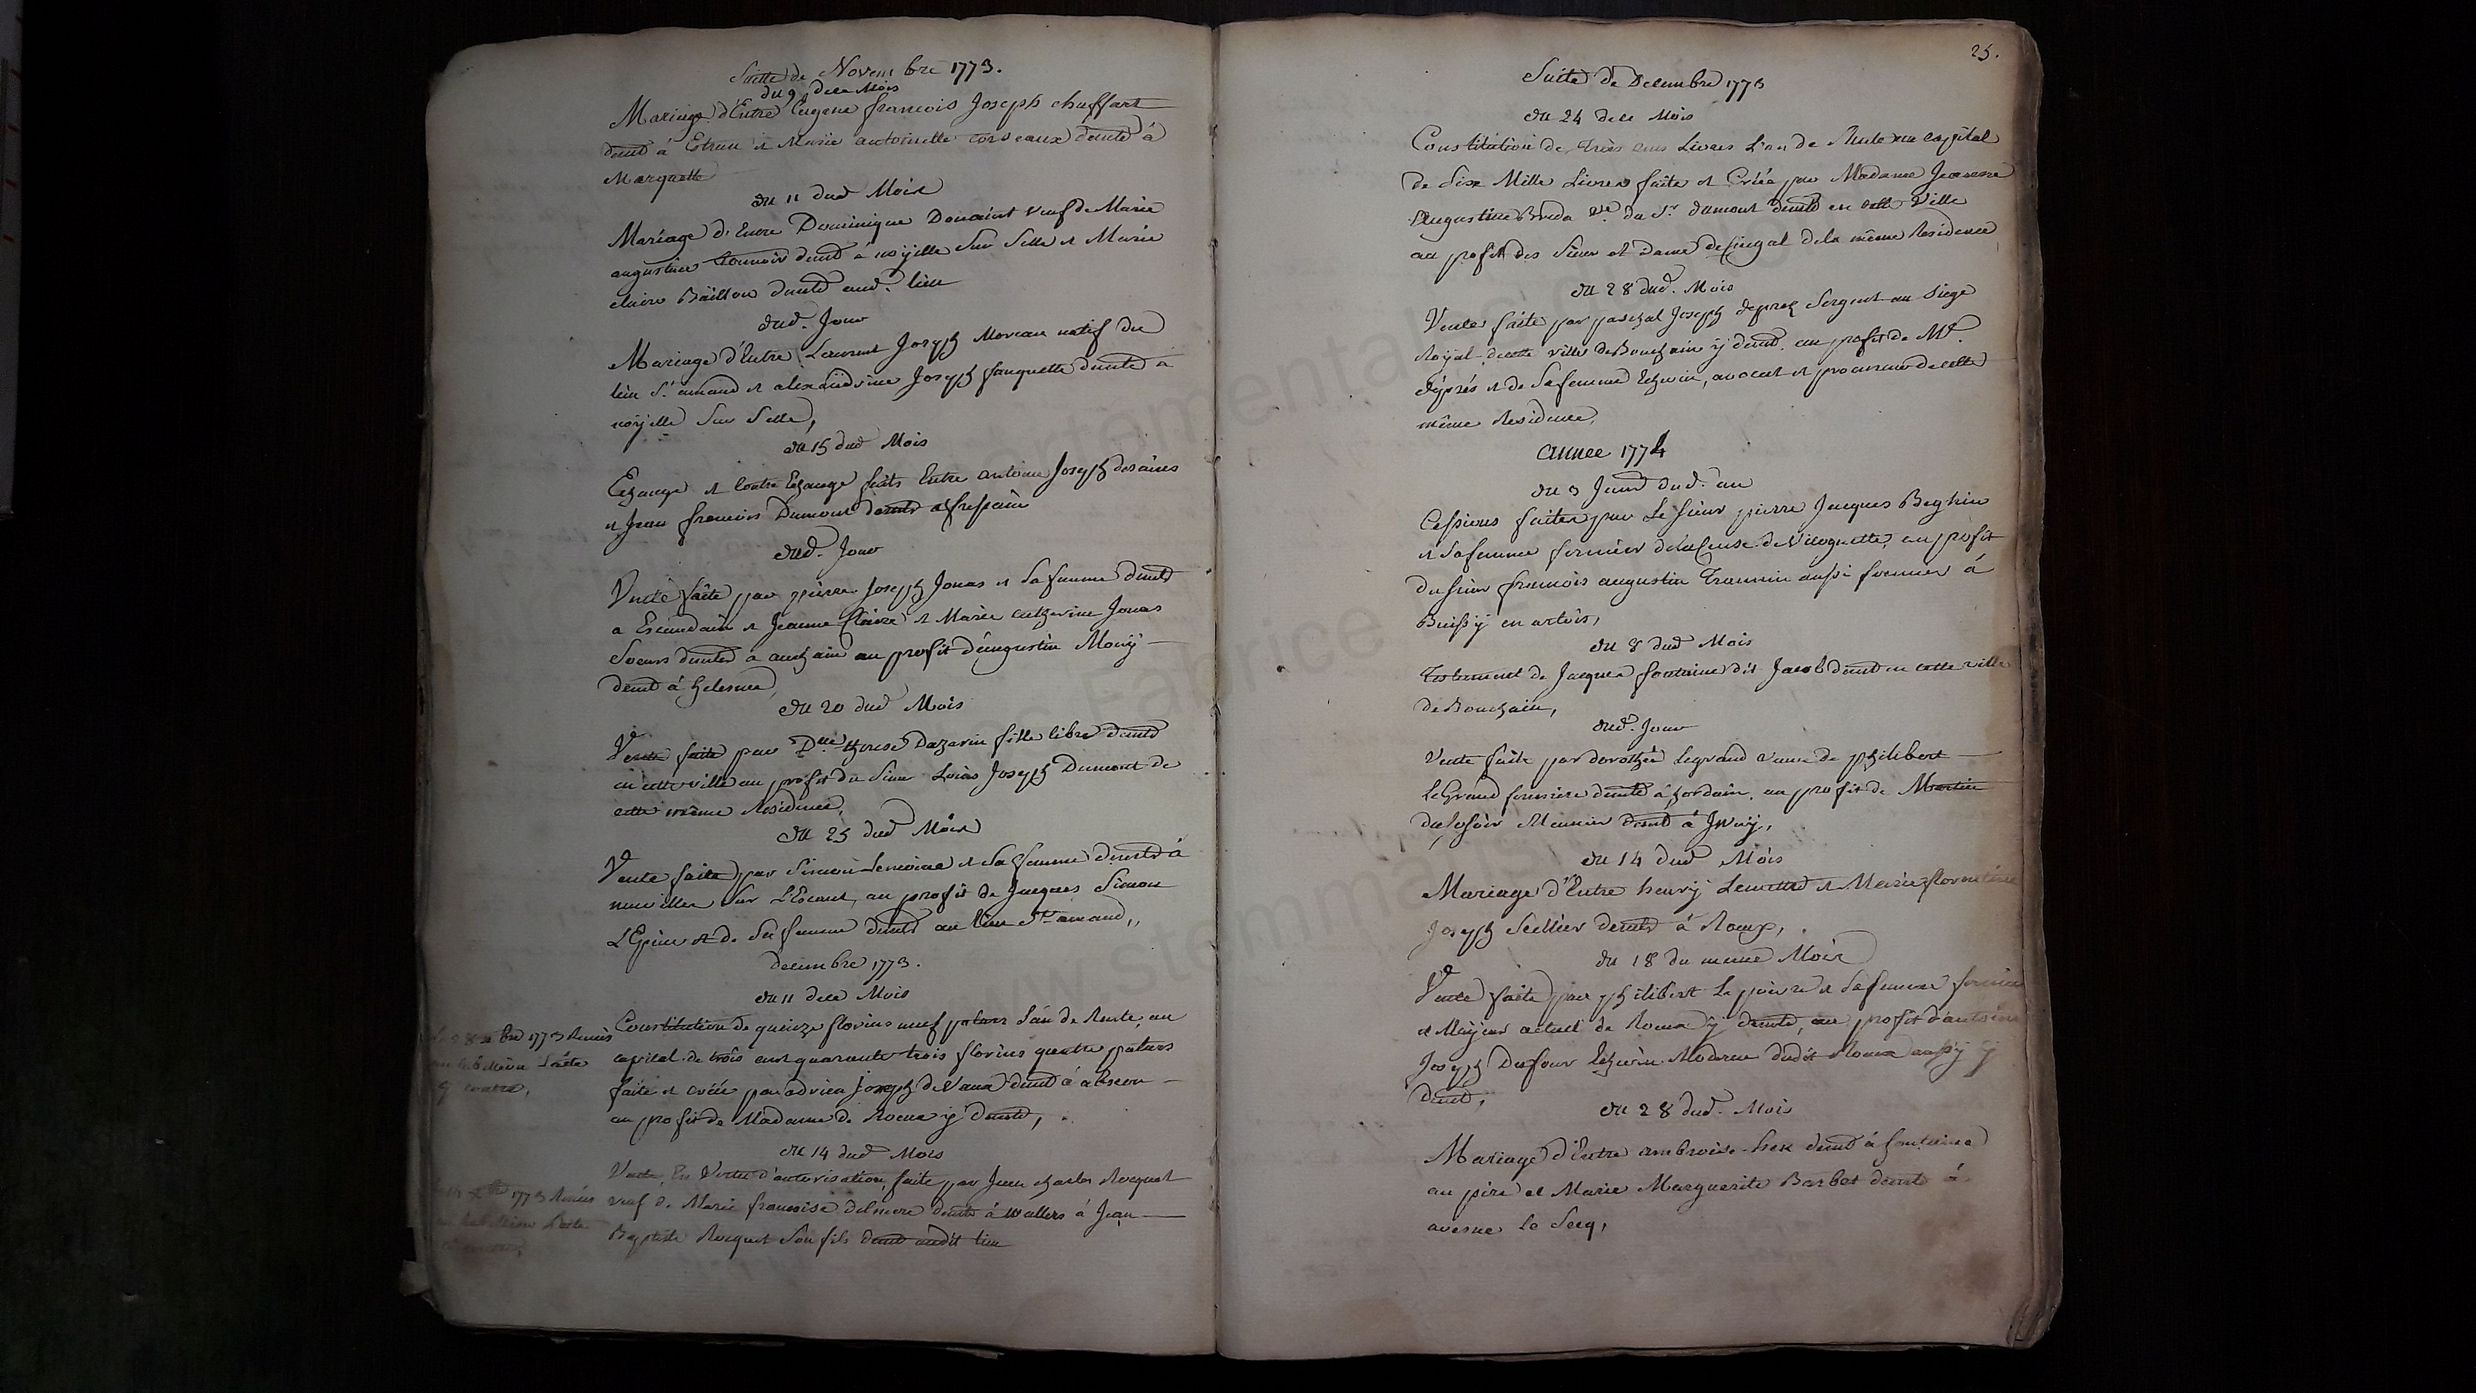 Suitte de Novembre 1773.
du 9 dece Mois
Mariage d'Entre Eugene francois Joseph chuffart
demt à Estrun et Marie antoinette corveaux demte à
Marquette
du 11 dud Mois
Mariage d'Entre Dominique Douaint veuf de Marie
augustine demt à noyelle Sur Selle et Marie
claire Baillon demte aud. lieu
dud. Jour
Mariage d'Entre Laurent Joseph Moreau natif du
lieu St amand et alexandrine Joseph fauquette demte à
noyelle Sur Selle,
du 15 dud Mois
Echange et Contre Echange faits Entre antoine Joseph desaines
et Jean francois Dumont demts à fressain
dud. Jour
Vente faite par pierre Joseph Jonas et sa femme demts
a Escaudain et Jeanne Claire et Marie catherine Jonas
Soeurs demtes a auchain au profit d'augustin Mouy
demt à helesmes,
du 20 dud Mois
Vente faite par Dlle therese Dazarin fille libre demte
en cette ville au profit du Sieur Louis Joseph Dumont de
cette même Residence,
du 25 dud Mois
Vente faite par Simon Lemoine et Sa femme demts à
neuville Sur L'Escaut, au profit de Jacques Simon
L'Epine et de Sa femme demts au lieu St amand,,
decembre 1773.
du 11 dece Mois
Constitution de quinze florins neuf patars L'an de Rente, au
capital de trois cent quarante trois florins quatre patars
faite et créée par adrien Joseph deVaux demt à abscon
au profit de Madame de Roeux y demte,
du 14 dud Mois
Vente, En Vertu d'autorisation, faite par Jean charles Rocquet
veuf de Marie francoise delmere demt à wallers à Jean
Baptiste Rocquet Son fils demt audit lieu
bre 1773 Remis
au tabellion
cy contre,
1773 Remis
au tabellion
25.
Suite de Decembre 1773
du 24 dece Mois
Constitution de trois cens Livres L'an de Rente au capital
de Six Mille Livres faite et Créée par Madame Jeanne
Augustine Breda ve du Sr dumont demte en cette Ville
au profit des Sieur et dame de Cingal dela même Residence
du 28 dud. Mois
Vente faite par paschal Joseph deprez Sergent au Siege
Royal decette ville deBouchain y demt. au profit de Mr.
déprés et de Sa femme Echevin, avocat et procureur decette
même Residence,
Année 1774
du 3 Janvr dud. an
Cessions faites par Le Sieur pierre Jacques Beghin
et Safemme fermier dela Cense de Viloguette, au profit
du Sieur francois augustin Trannin aussi fermier à
Buissÿ en artois,
du 8 dud Mois
Testament de Jacques fontaine dit Jacob demt en cette ville
deBouchain,
dud. Jour
Vente faite par dorothée Legrand veuve de philibert
LeGrand fermiere demte à hordain, au profit de Martin
Meunier demt à Iwuÿ,
du 14 dud Mois
Mariage d'Entre henrÿ et Marie florentine
Joseph Scellier demts à Roeux,
du 18 du meme Mois
Vente faite par philibert Le poivre et Safemme fermier
et Mayeur actuel de Roeux y demts, au profit d'antoine
Joseph Dufour Echevin Moderne dudit Roeux aussÿ ÿ
demt,
du 28 dud. Mois
Mariage d'Entre ambroise demt à fontaine
au pire et Marie Marguerite Barbet demte à
avesne le Secq,